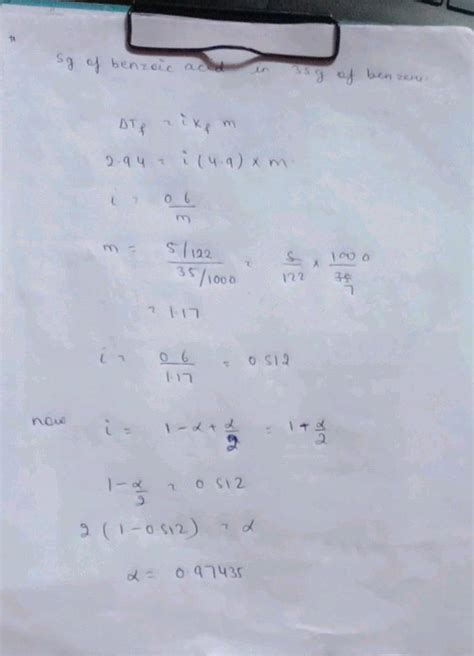 5g of benzoic acid in 35g of benzene.
ΔTf = i Kf m
2.94 = i (4.9) × m
i = 0.6/m
m = (5/122)/(35/1000) = 5/122 × 1000/35 7
= 1.17
i = 0.6/1.17 = 0.512
now i = 1-α+α/2 = 1+α/2
1-α/2 = 0.512
2 (1-0.512) = α
α = 0.97435